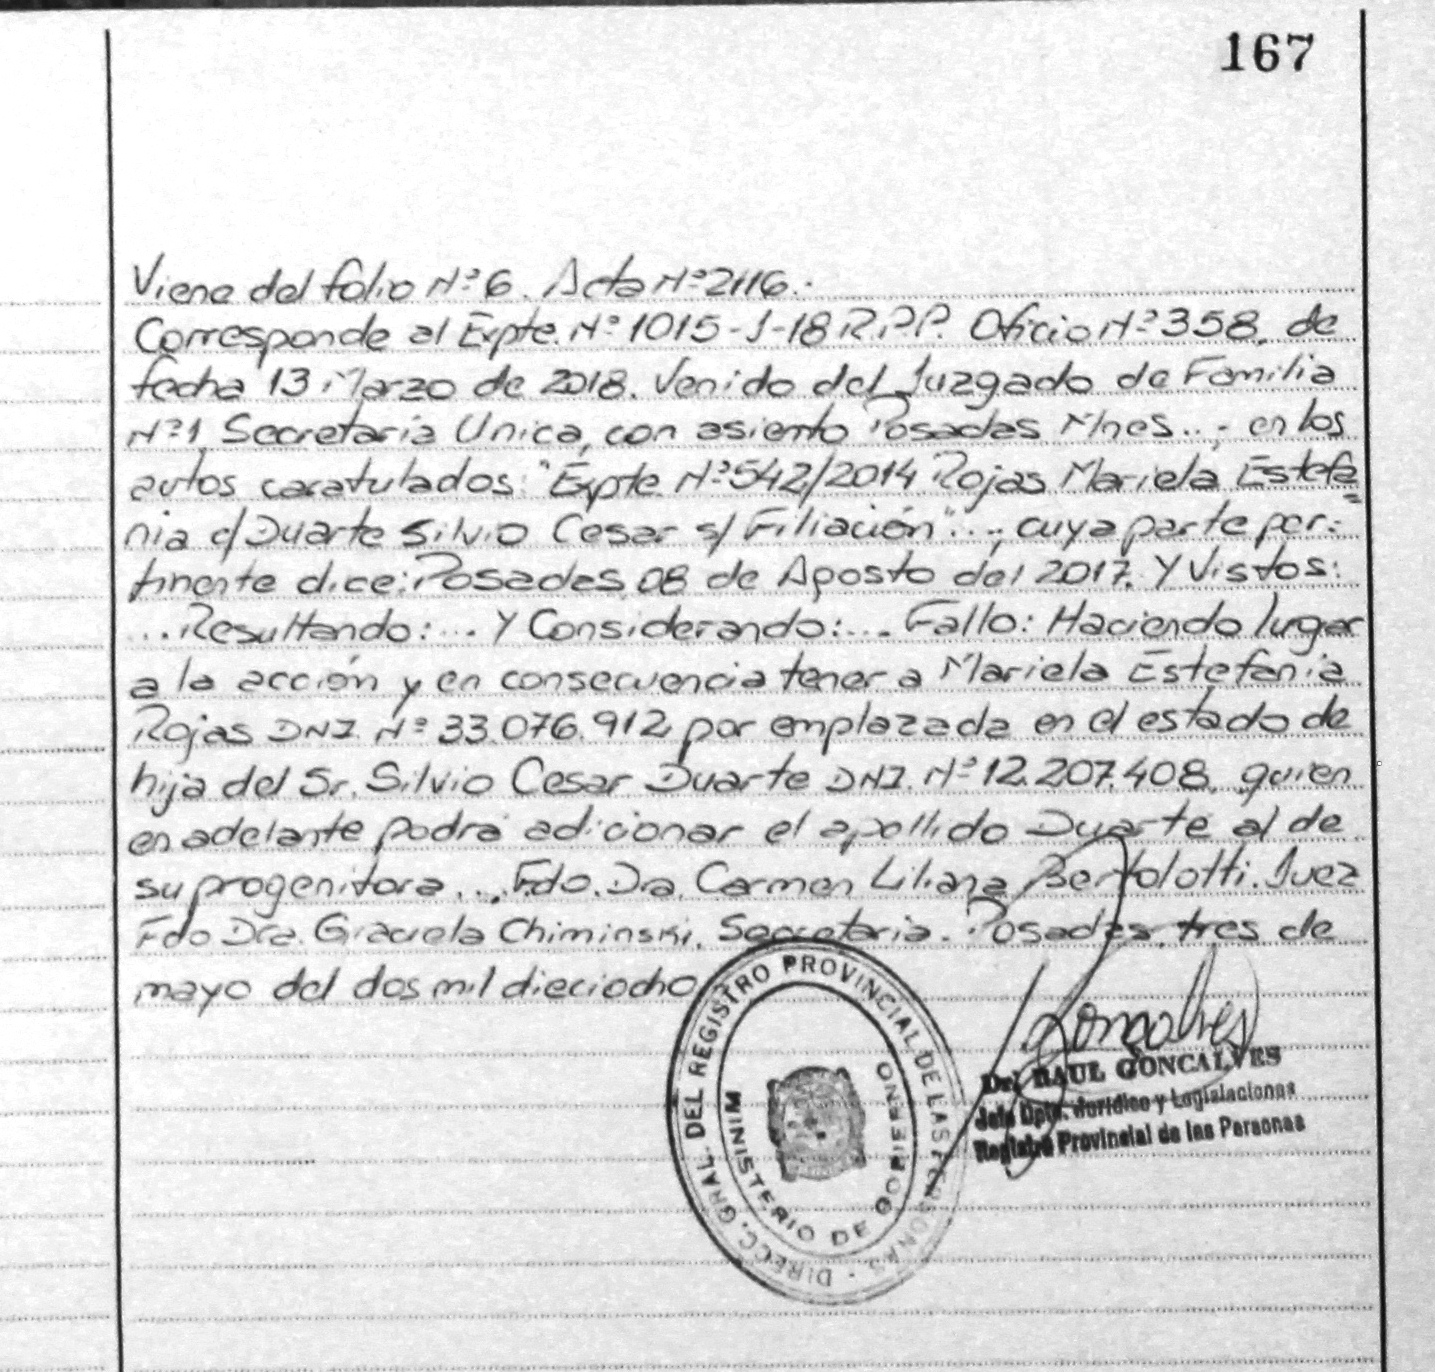 167
Viene del folio Nº 6. Acta Nº 2116.-
Corresponde al Expte. Nº 1015-J-18 R.P.P. Oficio Nº 358, de
fecha 13 Marzo de 2018. Venido del Juzgado de Familia
Nº1, Secretaria Unica, con asiento Posadas Mnes...; en los
autos caratulados: "Expte Nº 542/2014 Rojas Mariela Estefa=
nia c/ Duarte Silvio Cesar s/ Filiación"...; cuya parte per-
tinente dice: Posadas, 08 de Agosto del 2017. Y Vistos:
...Resultando:... Y Considerando:... Fallo: Haciendo lugar
a la acción y en consecuencia tener a Mariela Estefania
Rojas DNI. Nº 33.076.912, por emplazada en el estado de
hija del Sr. Silvio Cesar Duarte DNI. Nº 12.207.408, quien
en adelante podrá adicionar el apellido Duarte al de
su progenitora... Fdo. Dra. Carmen Liliana Bertolotti. Juez
Fdo Dra. Graciela Chiminski. Secretaria. Posadas, tres de
mayo del dos mil dieciocho
DIRECC. GRAL. DEL REGISTRO PROVINCIAL DE LAS PERSONAS
MINISTERIO DE GOBIERNO
Goncalves
Dr. RAUL GONCALVES
Jefe Dpto. Jurídico y Legislaciones
Registro Provincial de las Personas